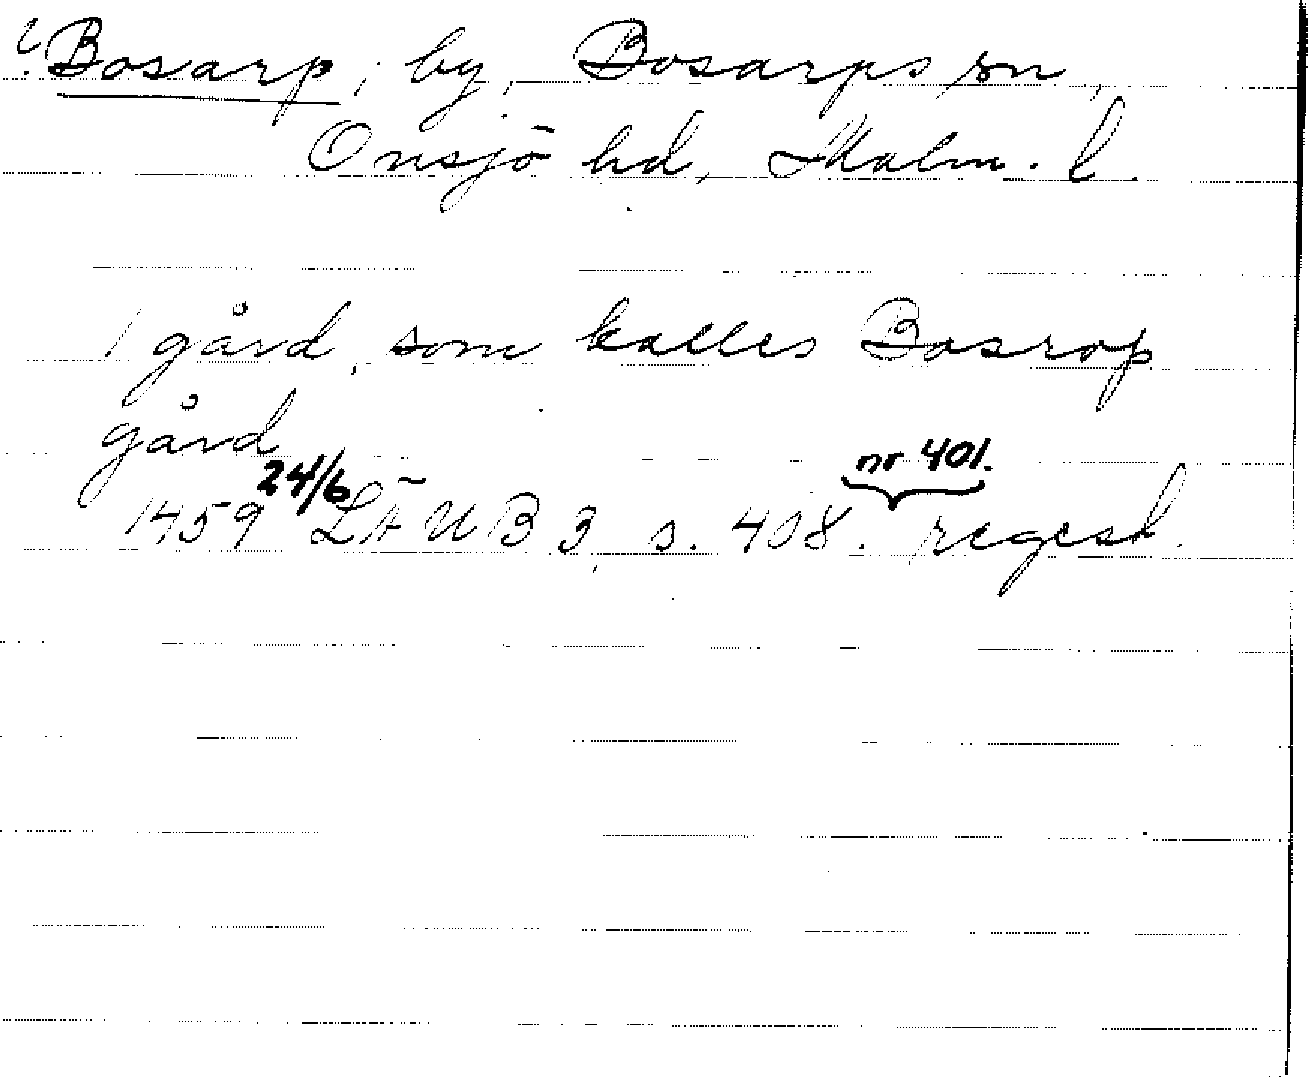 ? Bosarp, by, Bosarps sn,
Onsjö hd, Malm. l.
1 gård, som kalles Bosrop
gård
24/6 nr 401.
1459 LÄUB 3, s. 408. regest.